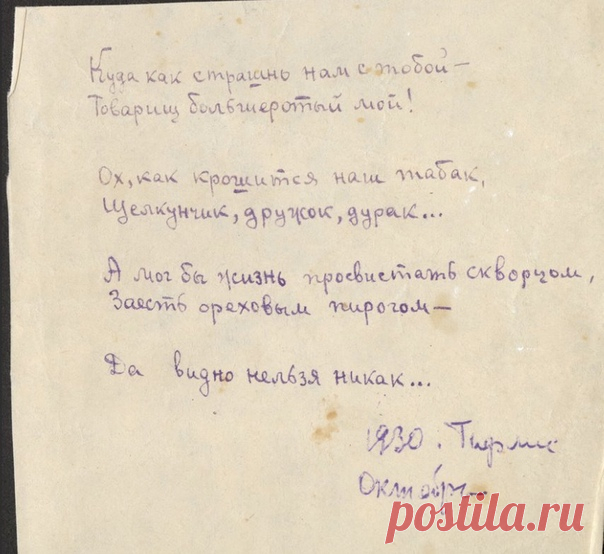 Куда как страшно нам с тобой —
Товарищ большеротый мой!
Ох, как крошится наш табак,
Щелкунчик, дружок, дурак...
А мог бы жизнь просвистать скворцом,
Заесть ореховым пирогом —
Да видно нельзя никак...
1930. Тифлис
Октябрь
postila.ru